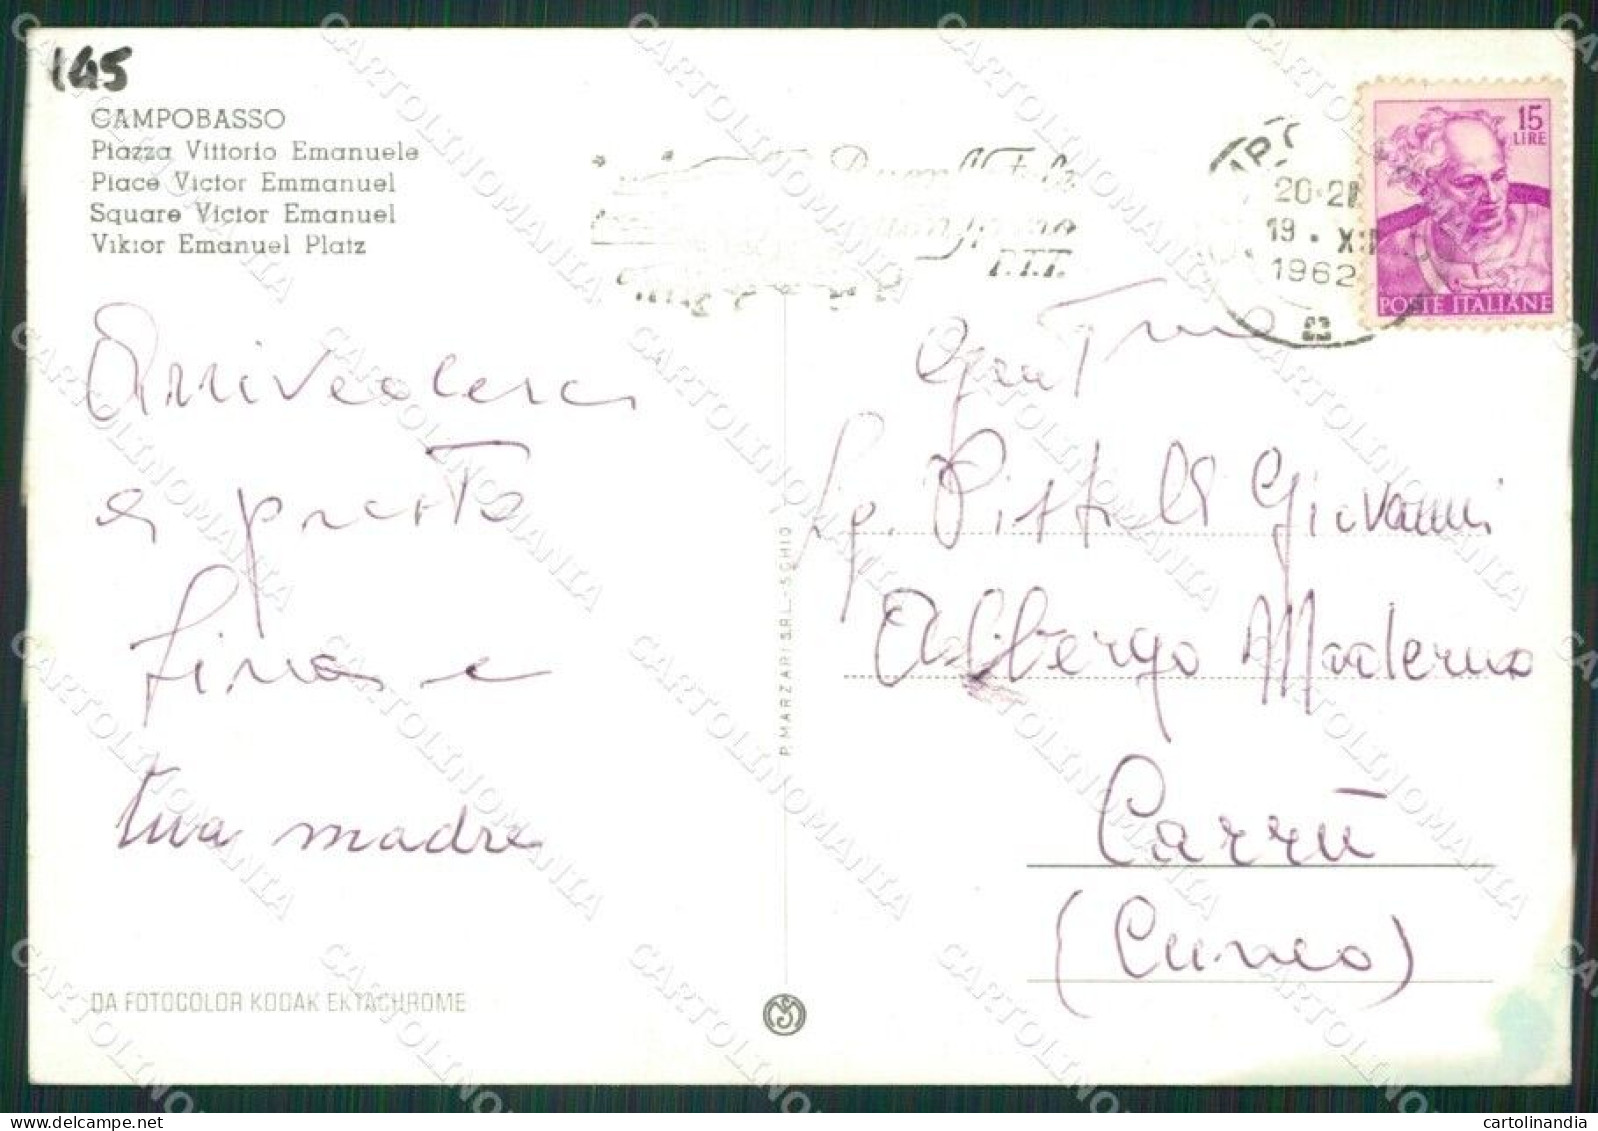 145
CAMPOBASSO
Piazza Vittorio Emanuele
Place Victor Emmanuel
Square Victor Emanuel
Viktor Emanuel Platz
P.T.T.
20-21
19 . XII
1962
15
LIRE
POSTE ITALIANE
Arrivederci
a presto
tua madre
Sig. Giovanni
Albergo Moderno
Carrù
(Cuneo)
P. MARZARI S.R.L. - SCHIO
DA FOTOCOLOR KODAK EKTACHROME
CARTOLINOMANIA
cartolinandia